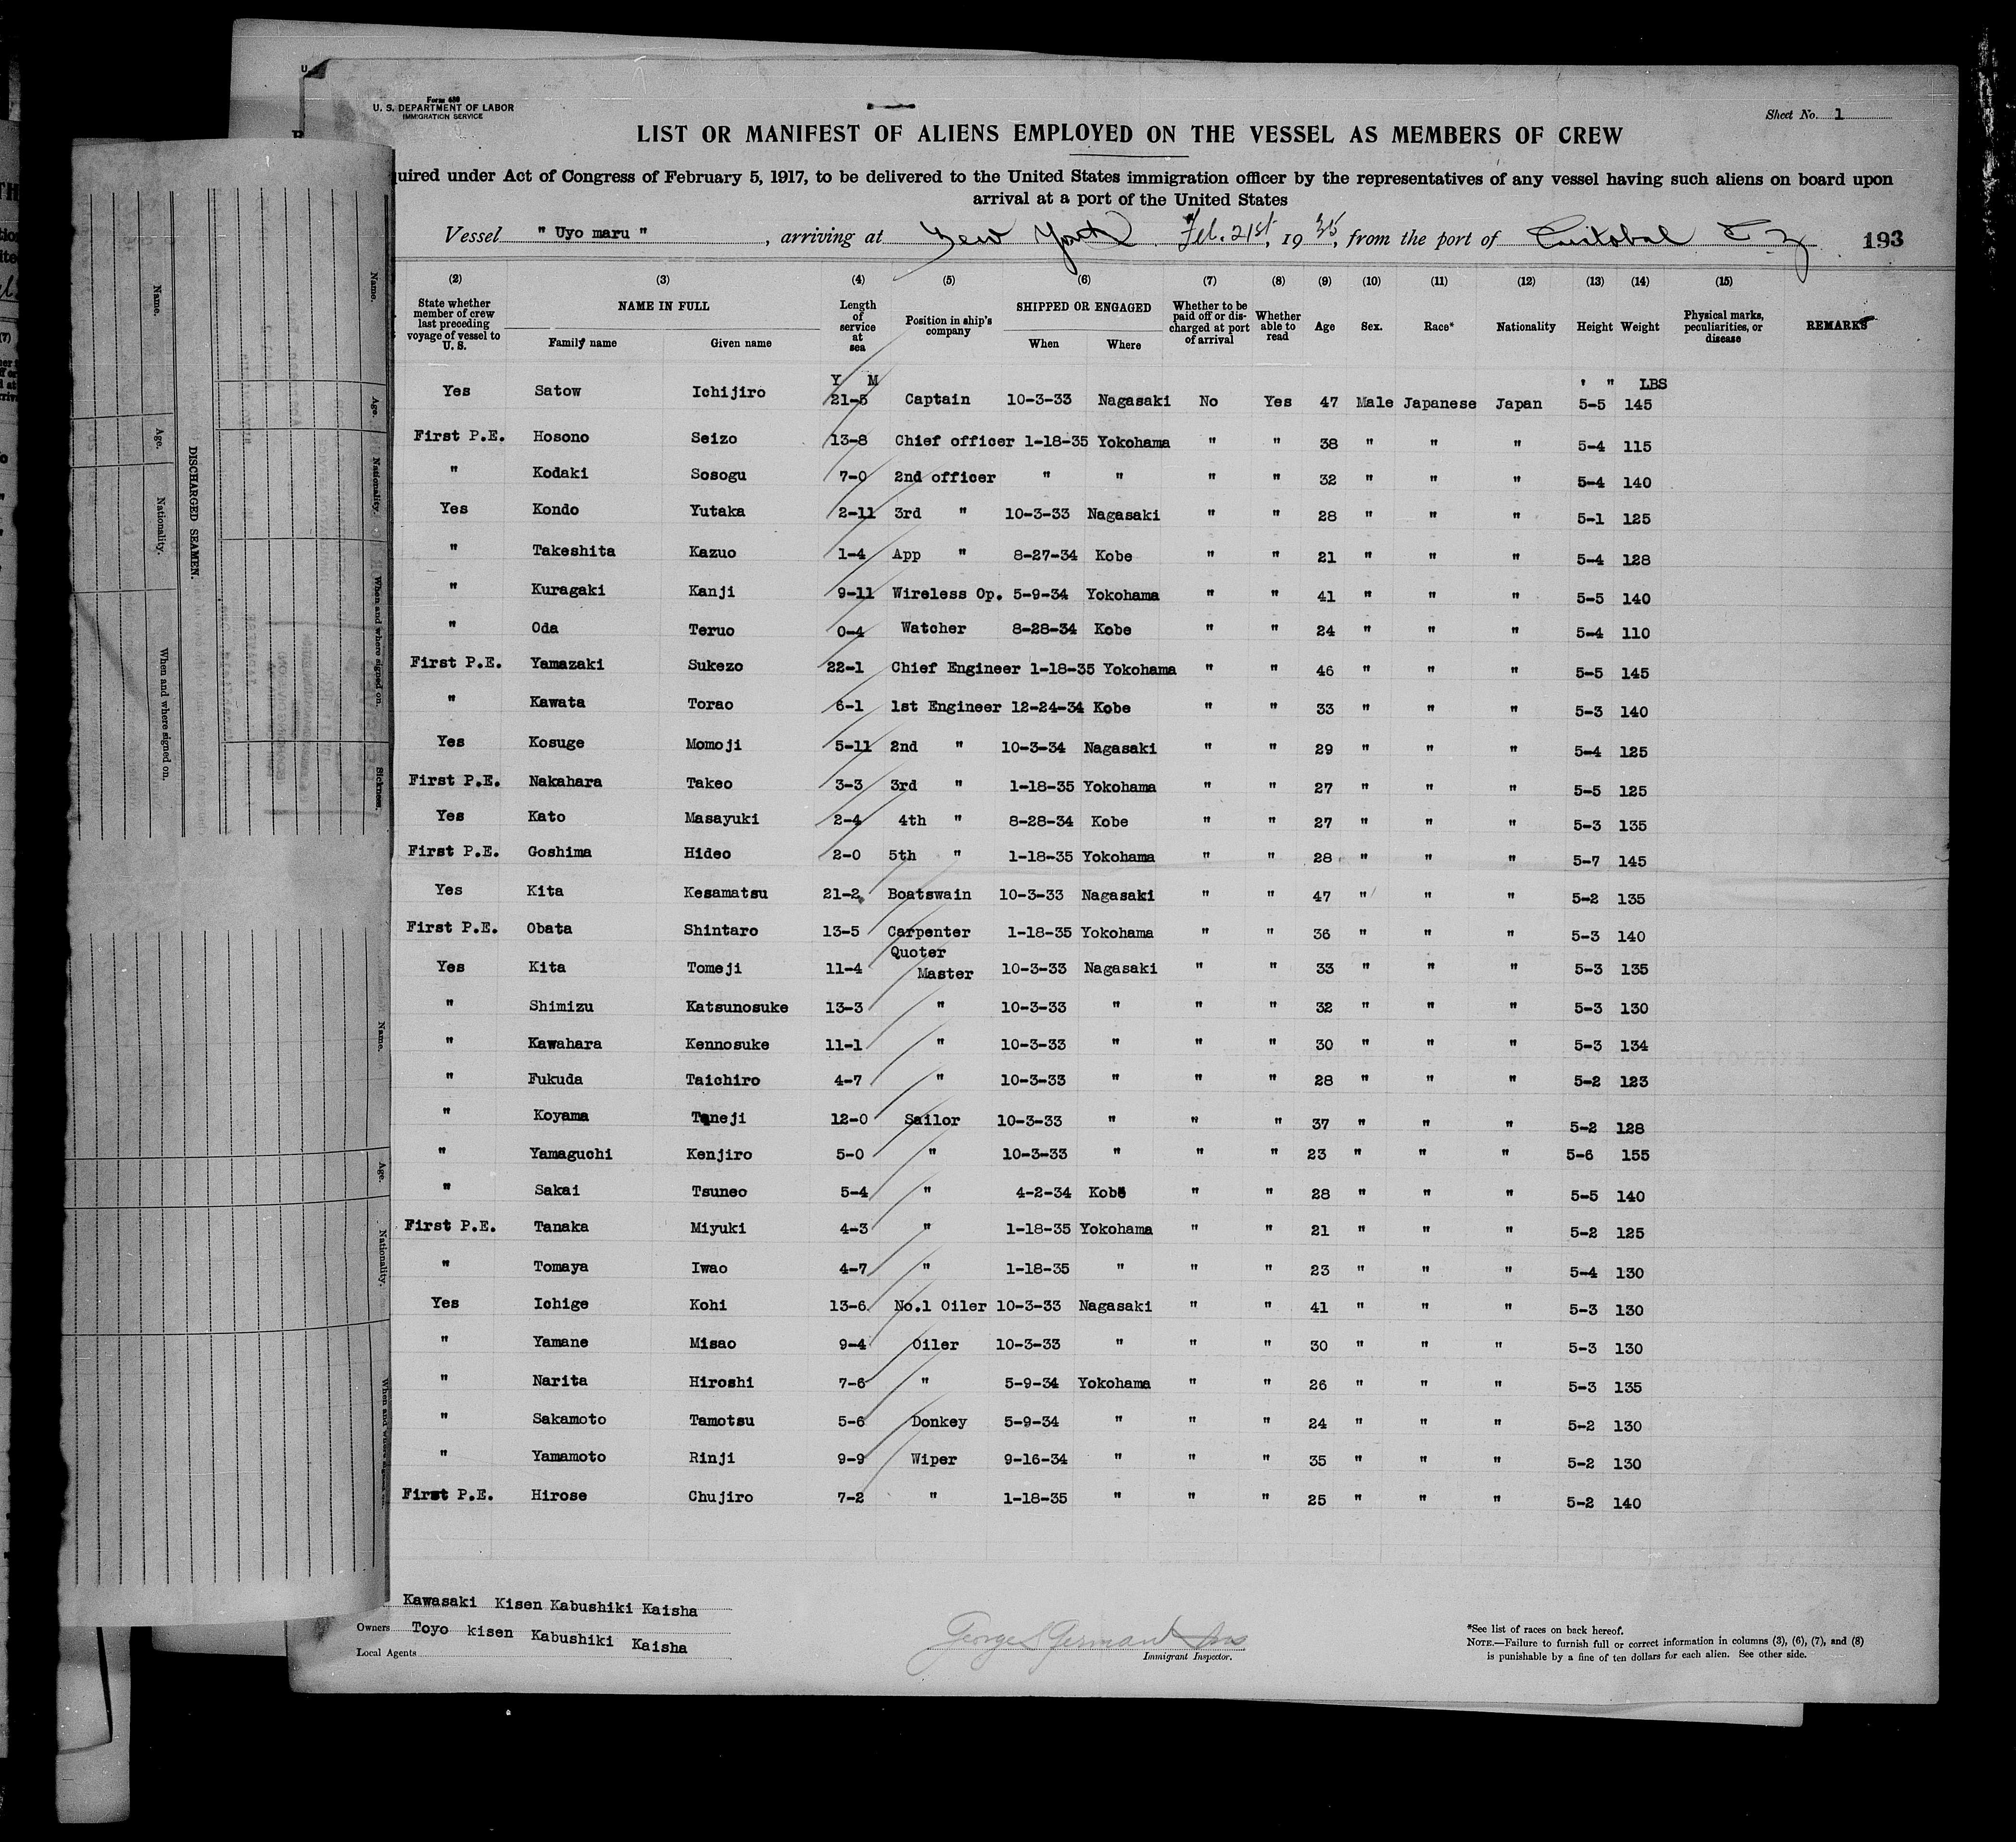 Form 480
U. S. DEPARTMENT OF LABOR
IMMIGRATION SERVICE
Sheet No. 1
LIST OR MANIFEST OF ALIENS EMPLOYED ON THE VESSEL AS MEMBERS OF CREW
quired under Act of Congress of February 5, 1917, to be delivered to the United States immigration officer by the representatives of any vessel having such aliens on board upon
arrival at a port of the United States
Vessel " Uyo maru ", arriving at New York Feb. 21st, 1935, from the port of Cristobal C Z 193
(2) (3) (4) (5) (6) (7) (8) (9) (10) (11) (12) (13) (14) (15)
State whether member of crew last preceding voyage of vessel to U. S. NAME IN FULL Family name Given name Length of service at sea Position in ship's company SHIPPED OR ENGAGED When Where Whether to be paid off or discharged at port of arrival Whether able to read Age Sex. Race* Nationality Height Weight Physical marks, peculiarities, or disease REMARKS
Y M ' " LBS
Yes Satow Ichijiro 21-5 Captain 10-3-33 Nagasaki No Yes 47 Male Japanese Japan 5-5 145
First P.E. Hosono Seizo 13-8 Chief officer 1-18-35 Yokohama " " 38 " " " 5-4 115
" Kodaki Sosogu 7-0 2nd officer " " " " 32 " " " 5-4 140
Yes Kondo Yutaka 2-11 3rd " 10-3-33 Nagasaki " " 28 " " " 5-1 125
" Takeshita Kazuo 1-4 App " 8-27-34 Kobe " " 21 " " " 5-4 128
" Kuragaki Kanji 9-11 Wireless Op. 5-9-34 Yokohama " " 41 " " " 5-5 140
" Oda Teruo 0-4 Watcher 8-28-34 Kobe " " 24 " " " 5-4 110
First P.E. Yamazaki Sukezo 22-1 Chief Engineer 1-18-35 Yokohama " " 46 " " " 5-5 145
" Kawata Torao 6-1 1st Engineer 12-24-34 Kobe " " 33 " " " 5-3 140
Yes Kosuge Momoji 5-11 2nd " 10-3-34 Nagasaki " " 29 " " " 5-4 125
First P.E. Nakahara Takeo 3-3 3rd " 1-18-35 Yokohama " " 27 " " " 5-5 125
Yes Kato Masayuki 2-4 4th " 8-28-34 Kobe " " 27 " " " 5-3 135
First P.E. Goshima Hideo 2-0 5th " 1-18-35 Yokohama " " 28 " " " 5-7 145
Yes Kita Kesamatsu 21-2 Boatswain 10-3-33 Nagasaki " " 47 " " " 5-2 135
First P.E. Obata Shintaro 13-5 Carpenter 1-18-35 Yokohama " " 36 " " " 5-3 140
Yes Kita Tomeji 11-4 Quoter Master 10-3-33 Nagasaki " " 33 " " " 5-3 135
" Shimizu Katsunosuke 13-3 " 10-3-33 " " " 32 " " " 5-3 130
" Kawahara Kennosuke 11-1 " 10-3-33 " " " 30 " " " 5-3 134
" Fukuda Taichiro 4-7 " 10-3-33 " " " 28 " " " 5-2 123
" Koyama Taneji 12-0 Sailor 10-3-33 " " " 37 " " " 5-2 128
" Yamaguchi Kenjiro 5-0 " 10-3-33 " " " 23 " " " 5-6 155
" Sakai Tsuneo 5-4 " 4-2-34 Kobe " " 28 " " " 5-5 140
First P.E. Tanaka Miyuki 4-3 " 1-18-35 Yokohama " " 21 " " " 5-2 125
" Tomaya Iwao 4-7 " 1-18-35 " " " 23 " " " 5-4 130
Yes Ichige Kohi 13-6 No.1 Oiler 10-3-33 Nagasaki " " 41 " " " 5-3 130
" Yamane Misao 9-4 Oiler 10-3-33 " " " 30 " " " 5-3 130
" Narita Hiroshi 7-6 " 5-9-34 Yokohama " " 26 " " " 5-3 135
" Sakamoto Tamotsu 5-6 Donkey 5-9-34 " " " 24 " " " 5-2 130
" Yamamoto Rinji 9-9 Wiper 9-16-34 " " " 35 " " " 5-2 130
First P.E. Hirose Chujiro 7-2 " 1-18-35 " " " 25 " " " 5-2 140
Kawasaki Kisen Kabushiki Kaisha
Owners Toyo kisen Kabushiki Kaisha
Local Agents
Immigrant Inspector.
*See list of races on back hereof.
NOTE.—Failure to furnish full or correct information in columns (3), (6), (7), and (8)
is punishable by a fine of ten dollars for each alien. See other side.
DISCHARGED SEAMEN.
Name.
Age.
Nationality.
When and where signed on.
Name.
Age.
Nationality.
When and where signed on.
Sickness.
Name.
Age.
Nationality.